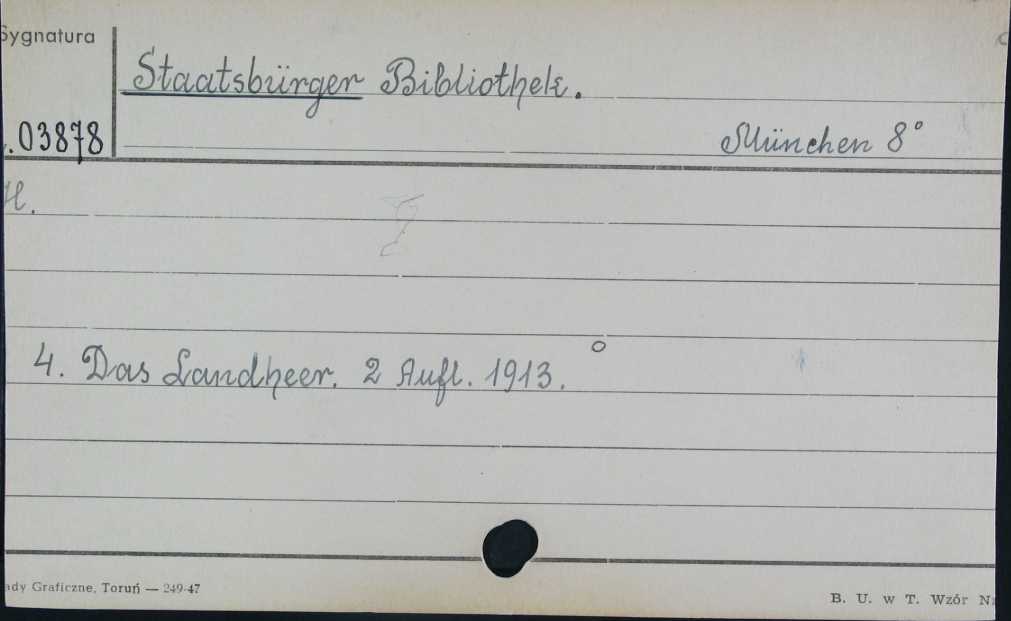 Sygnatura
Staatsbürger Bibliothek.
.03878
München 8°
H.
4. Das Landheer. 2 Aufl. 1913.
ady Graficzne, Toruń — 249-47
B. U. w T. Wzór N